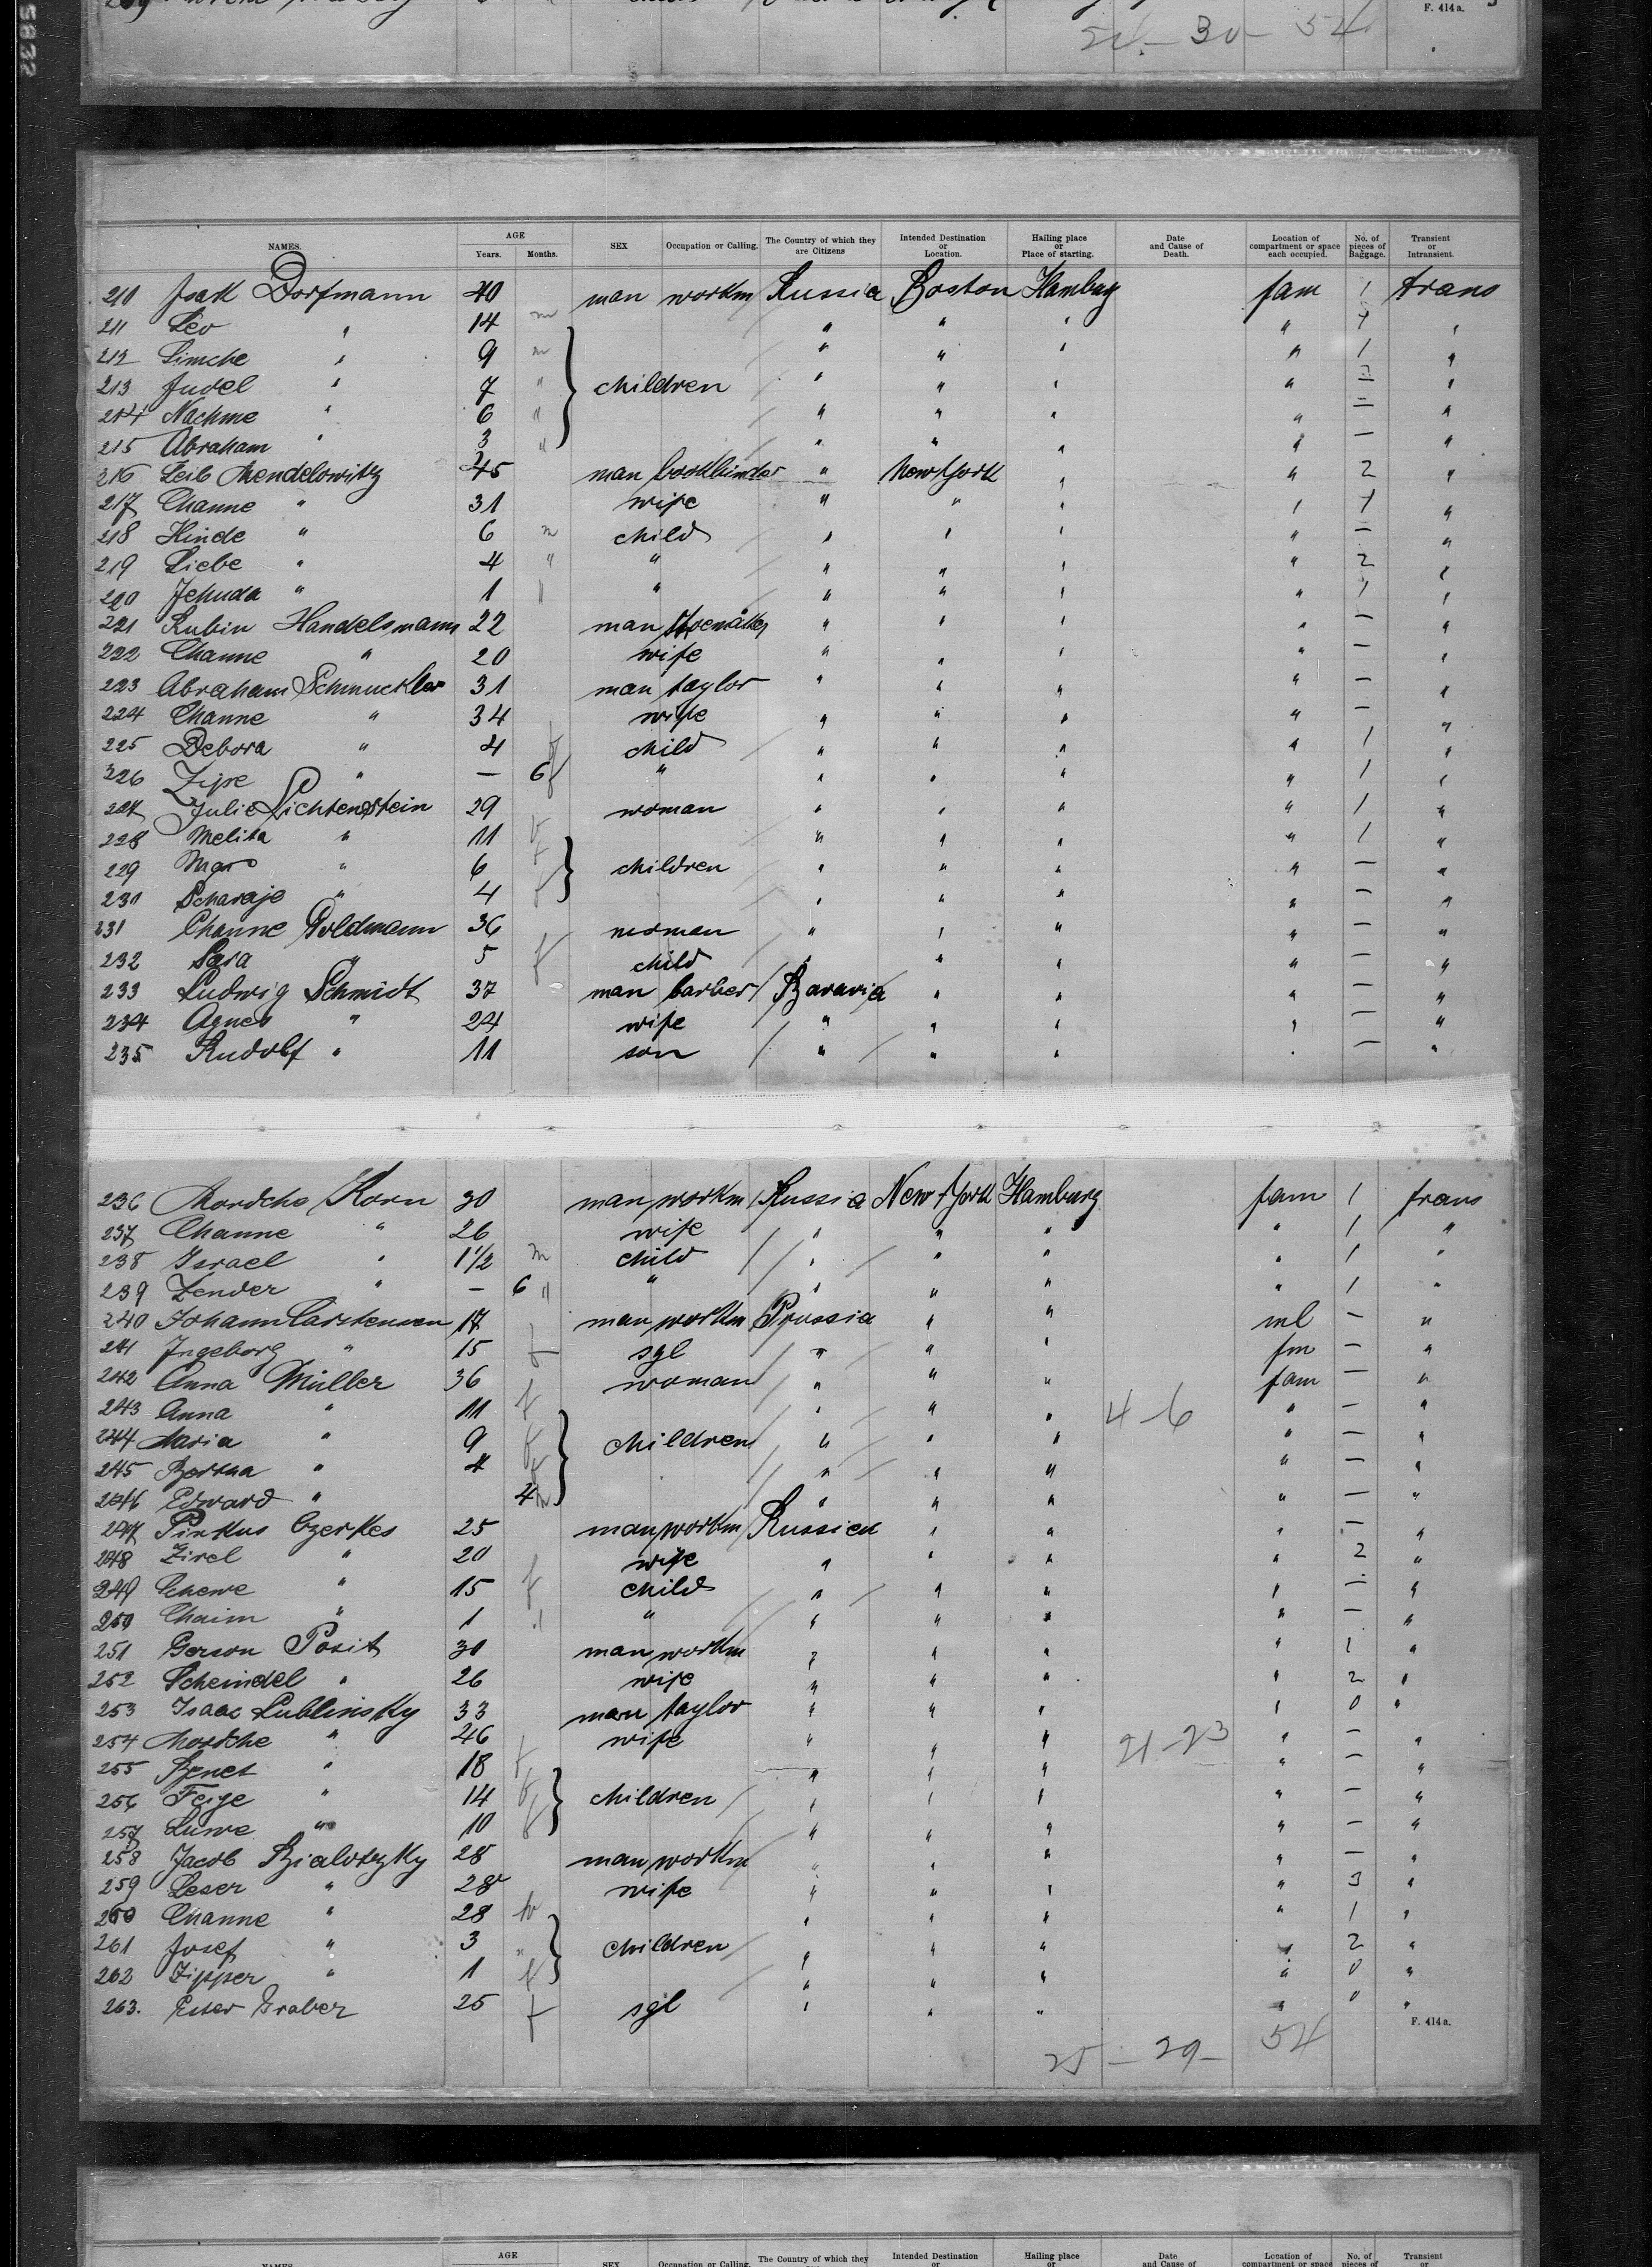 F. 414a.
54 - 30 - 54
NAMES. AGE Years. Months. SEX Occupation or Calling. The Country of which they are Citizens Intended Destination or Location. Hailing place or Place of starting. Date and Cause of Death. Location of compartment or space each occupied. No. of pieces of Baggage. Transient or Intransient.
210 Isak Dorfmann 40 man workm Russia Boston Hamburg fam 1 trans
211 Leo " 14 m " " " " 1 "
212 Simche " 9 m " " " " 1 "
213 Judel " 7 " children " " " " "
214 Nachme " 6 " " " " " — "
215 Abraham " 3 " " " " " — "
216 Leib Mendelowitz 45 man bookbinder " New York " " 2 "
217 Channe " 31 wife " " " " 1 "
218 Hinde " 6 m child " " " " — "
219 Liebe " 4 " " " " " " 2 "
220 Jehuda " 1 " " " " " " 1 "
221 Rubin Handelsmann 22 man " " " " — "
222 Channe " 20 wife " " " " — "
223 Abraham Schmuckler 31 man taylor " " " " — "
224 Channe " 34 wife " " " " — "
225 Debora " 4 f child " " " " 1 "
226 Zipe " — 6 f " " " " " 1 "
227 Julie Lichtenstein 29 woman " " " " 1 "
228 Melita " 11 f " " " " 1 "
229 " 6 f children " " " " — "
230 Scharaje " 4 f " " " " — "
231 Channe Goldmann 36 woman " " " " — "
232 Sara " 5 f child " " " " — "
233 Ludwig Schmidt 37 man barber Bavaria " " " — "
234 Agnes " 24 wife " " " " — "
235 Rudolf " 11 son " " " " — "
236 Mordche Korn 30 man workm Russia New York Hamburg fam 1 trans
237 Channe " 26 wife " " " " 1 "
238 Israel " 1 1/2 m child " " " " 1 "
239 Zender " — 6 " " " " " " 1 "
240 Johann Carstensen 17 man workm Prussia " " ml — "
241 Ingeborg " 15 f sgl " " " fm — "
242 Anna Müller 36 woman " " " fam — "
243 Anna " 11 f " " " 4-6 " — "
244 Maria " 9 f children " " " " — "
245 Bertha " 4 f " " " " — "
246 Edward " 4 m " " " " — "
247 Pinkus Czerkes 25 man workm Russien " " " — "
248 Zirel " 20 wife " " " " 2 "
249 Schewe " 15 f child " " " " — "
250 Chaim " 1 " " " " " " — "
251 Gerson Posit 30 man workm " " " " 1 "
252 Scheindel " 26 wife " " " " 2 "
253 Isaac Lublinsky 33 man taylor " " " " 0 "
254 Mordche " 46 wife " " " 21-23 " — "
255 " 18 f " " " " — "
256 Feige " 14 f children " " " " — "
257 Luwe " 10 f " " " " — "
258 Jacob Bialotzky 28 man workm " " " " — "
259 Leser " 28 wife " " " " 3 "
260 Channe " 28 " " " " 1 "
261 Josef " 3 " children " " " " 2 "
262 Zipper " 1 f " " " " 0 "
263. Ester Graber 25 f sgl " " " " 0 "
F. 414a.
25 - 29 - 54
NAMES. AGE SEX Occupation or Calling. The Country of which they Intended Destination or Hailing place or Date and Cause of Location of compartment or space No. of pieces of Transient or